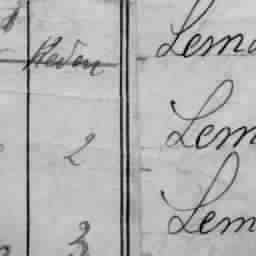 Redon Lem
2 Lem
3 Lem